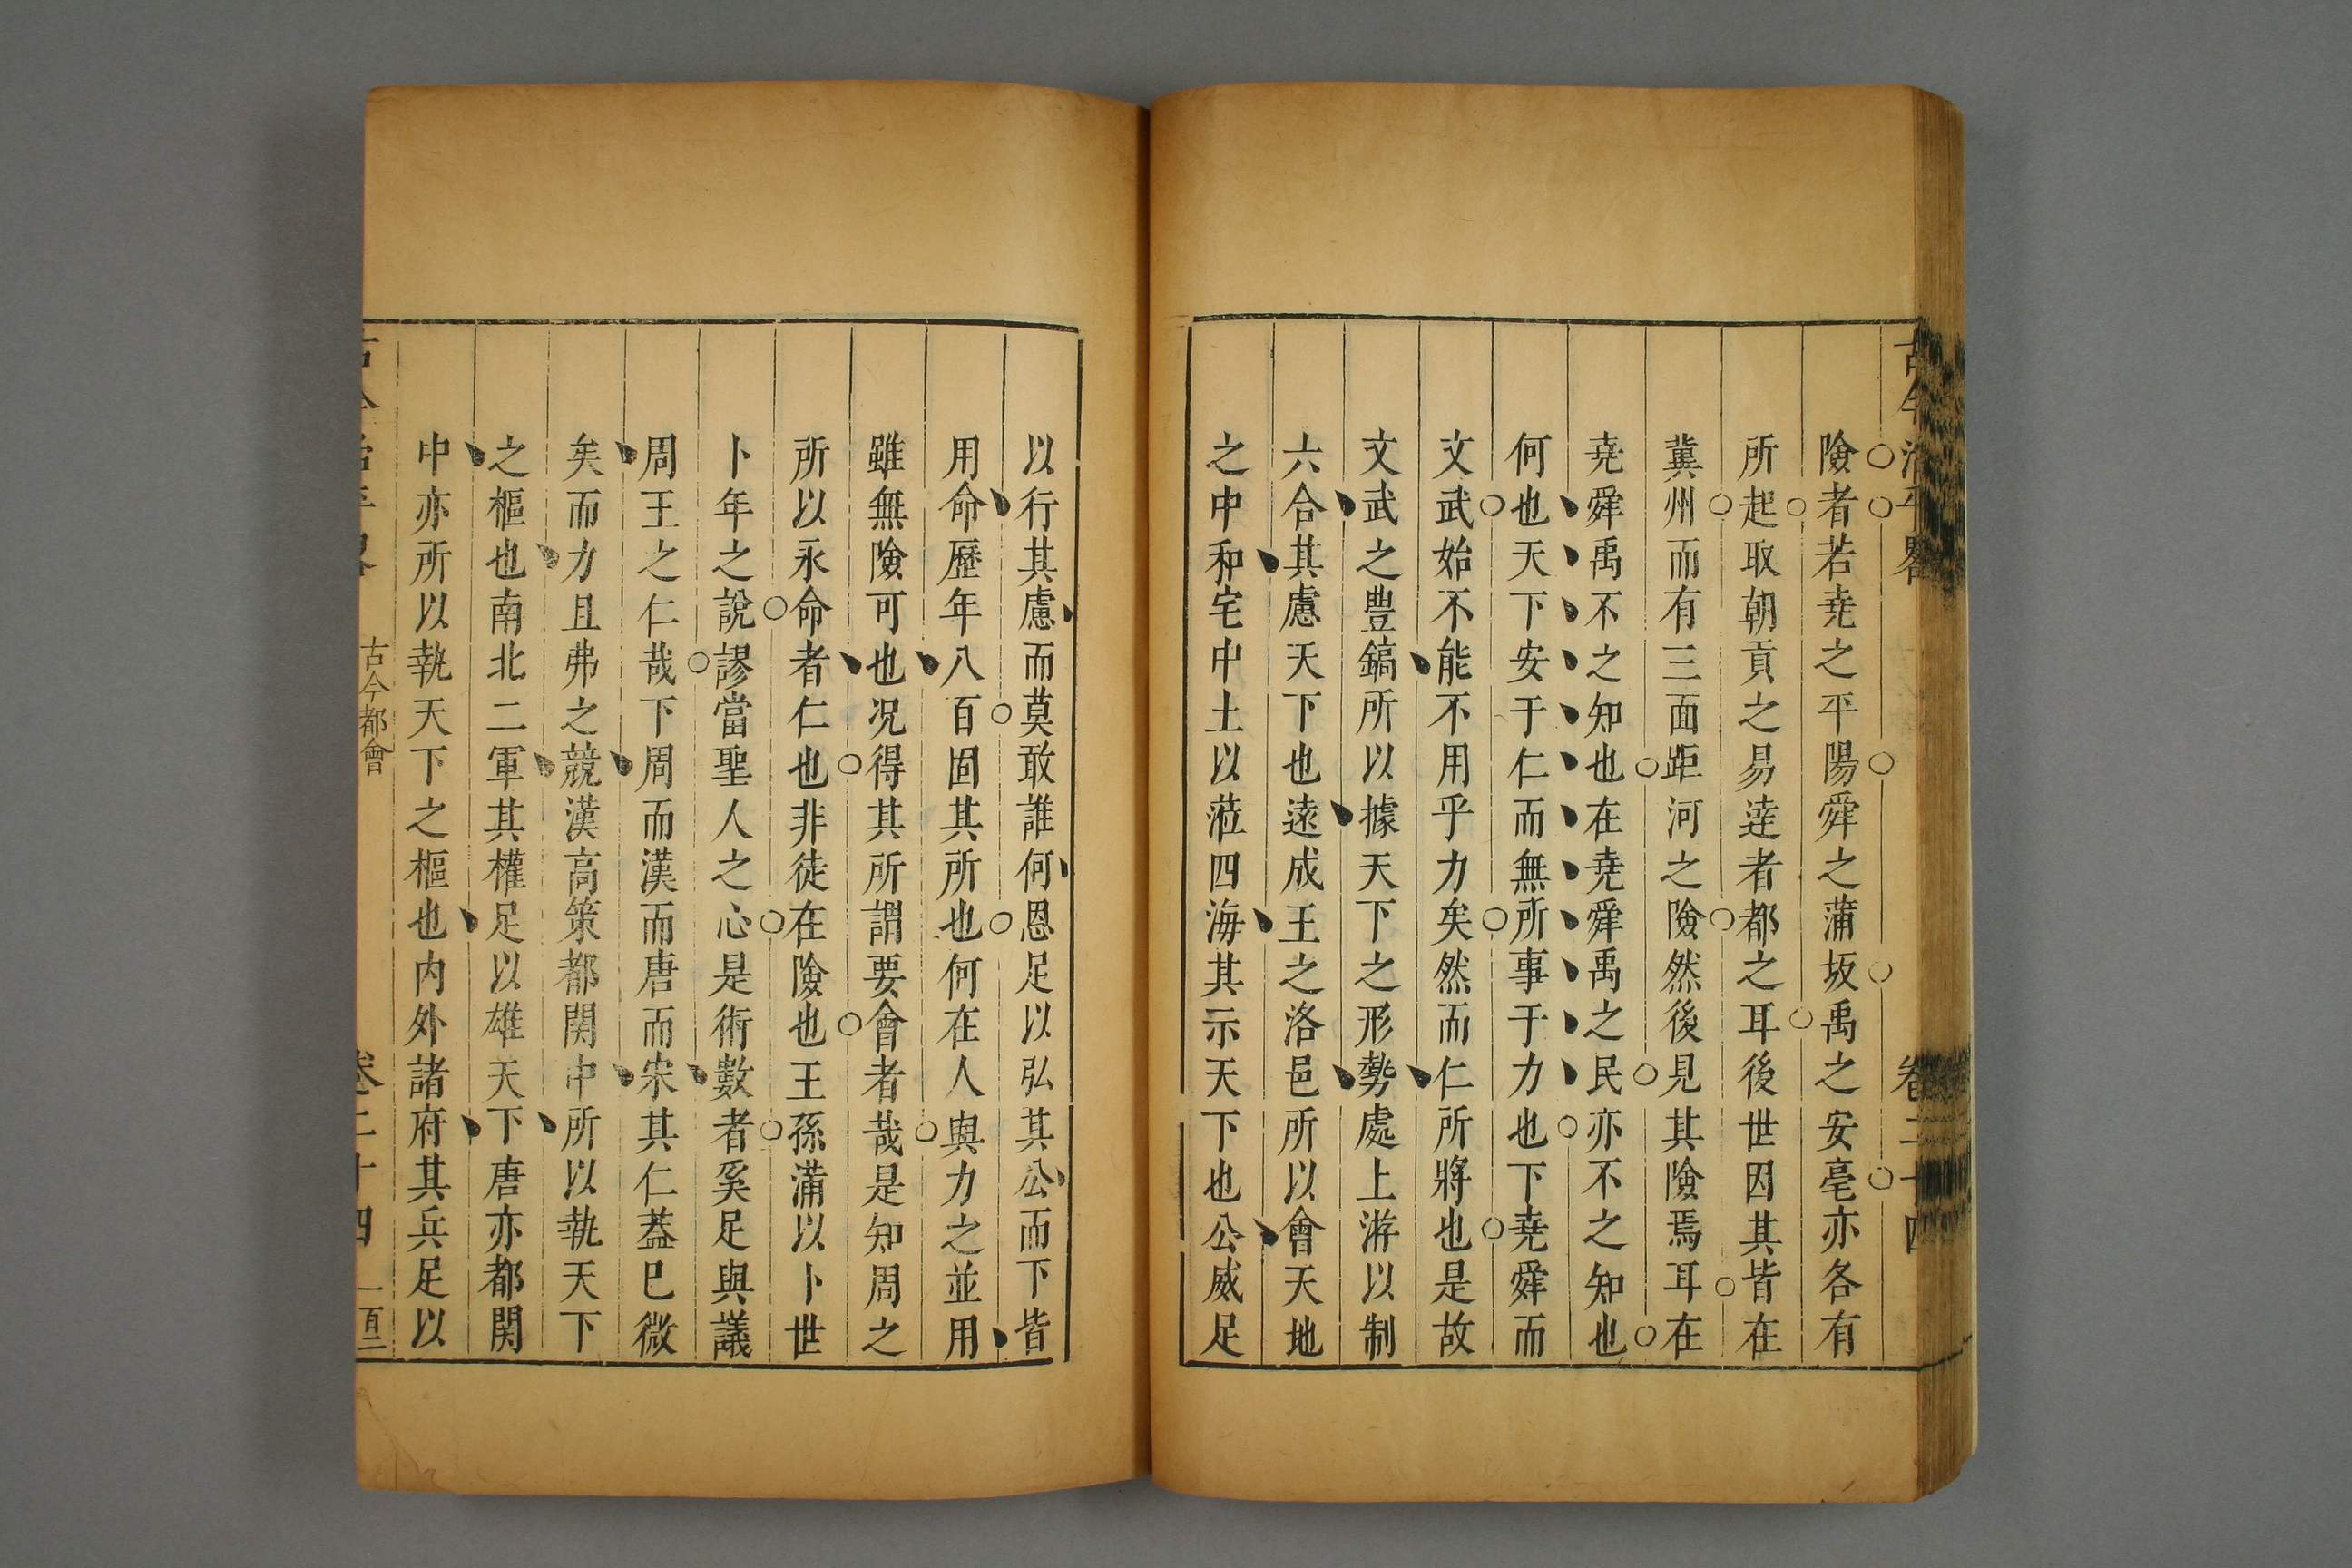 古今治平畧 卷二十四
險者若堯之平陽舜之蒲坂禹之安亳亦各有
所起取朝貢之易達者都之耳後世因其皆在
冀州而有三面距河之險然後見其險焉耳在
堯舜禹不之知也在堯舜禹之民亦不之知也
何也天下安于仁而無所事于力也下堯舜而
文武始不能不用乎力矣然而仁所將也是故
文武之豊鎬所以據天下之形勢處上游以制
六合其慮天下也遠成王之洛邑所以會天地
之中和宅中土以蒞四海其示天下也公威足
以行其慮而莫敢誰何恩足以弘其公而下皆
用命歷年八百固其所也何在人與力之並用
雖無險可也况得其所謂要會者哉是知周之
所以永命者仁也非徒在險也王孫滿以卜世
卜年之說謬當聖人之心是術數者奚足與議
周王之仁哉下周而漢而唐而宋其仁葢巳微
矣而力且弗之競漢高策都関中所以執天下
之樞也南北二軍其權足以雄天下唐亦都関
中亦所以執天下之樞也内外諸府其兵足以
古今治平畧 古今都會 卷二十四 一百二